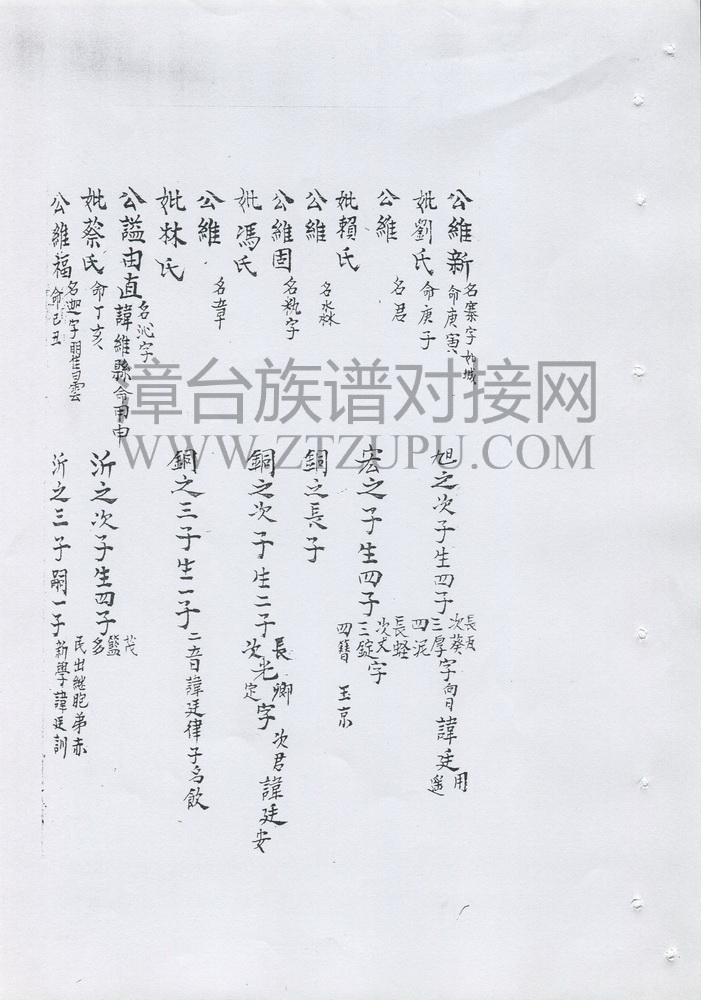 公維新 名寨字如城 命庚寅
妣劉氏 命庚子
公維 名君
妣賴氏
公維 名水森
公維固 名執字
妣馮氏
公維 名章
妣林氏
公謚由直諱維縣命甲申 名沁字
妣蔡氏 命丁亥
公維福 名迦字 命己丑
旭之次子生四子 長 次葵 三厚 四泥 字 諱廷 用
宏之子生四子 長 次 三錠 四 字 玉京
銅之長子
銅之次子生二子 長卿 次光 字定 次君諱廷安
銅之三子生二子 二音諱廷律子名飲
沂之次子生四子 茂 籃 多
沂之三子嗣一子 民出繼胞弟赤 新學諱廷訓
章台族谱对接网
WWW.ZTZUPU.COM